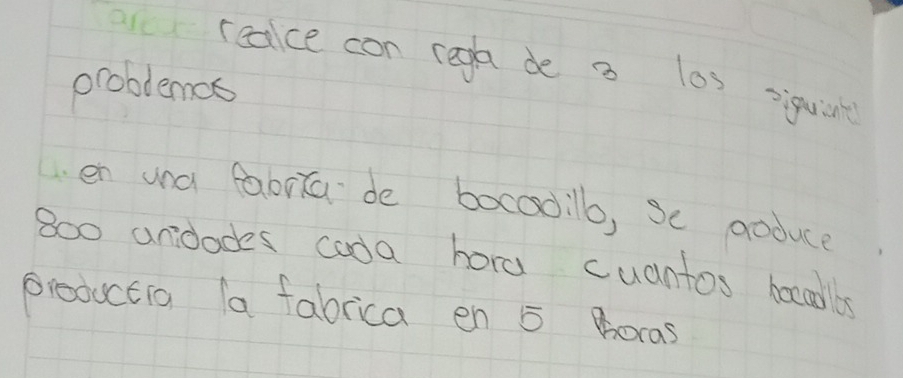 realice con regla de 3 los siguientes
problemas
1. en una fabrica de bocadillo, se produce
800 unidades cada hora cuantos bocadillos
productria la fabrica en 5 horas